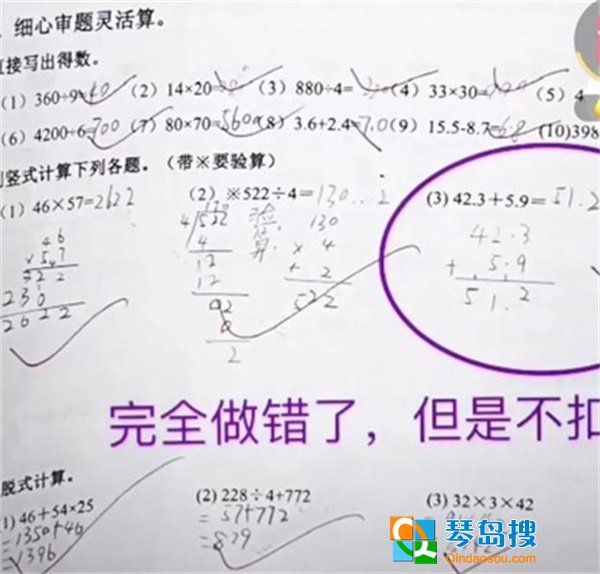 细心审题灵活算。
直接写出得数。
(1) 360÷9= 40 (2) 14×20= (3) 880÷4= (4) 33×30= (5) 4
(6) 4200÷6= 700 (7) 80×70= 5600 (8) 3.6+2.4= 7.0 (9) 15.5-8.7= 6.8 (10)398
列竖式计算下列各题。(带※要验算)
(1) 46×57= 2622 (2) ※522÷4= 130...2 (3) 42.3+5.9= 51.2
46
×57
322
230
2622
130
4/522
4
12
12
02
0
2
验算.
130
× 4
+ 2
522
42.3
+ 5.9
51.2
完全做错了，但是不扣
脱式计算。
(1) 46+54×25 (2) 228÷4+772 (3) 32×3×42
=1350+46 = 57+772
=1396 = 829
琴岛搜
Qindaosou.com